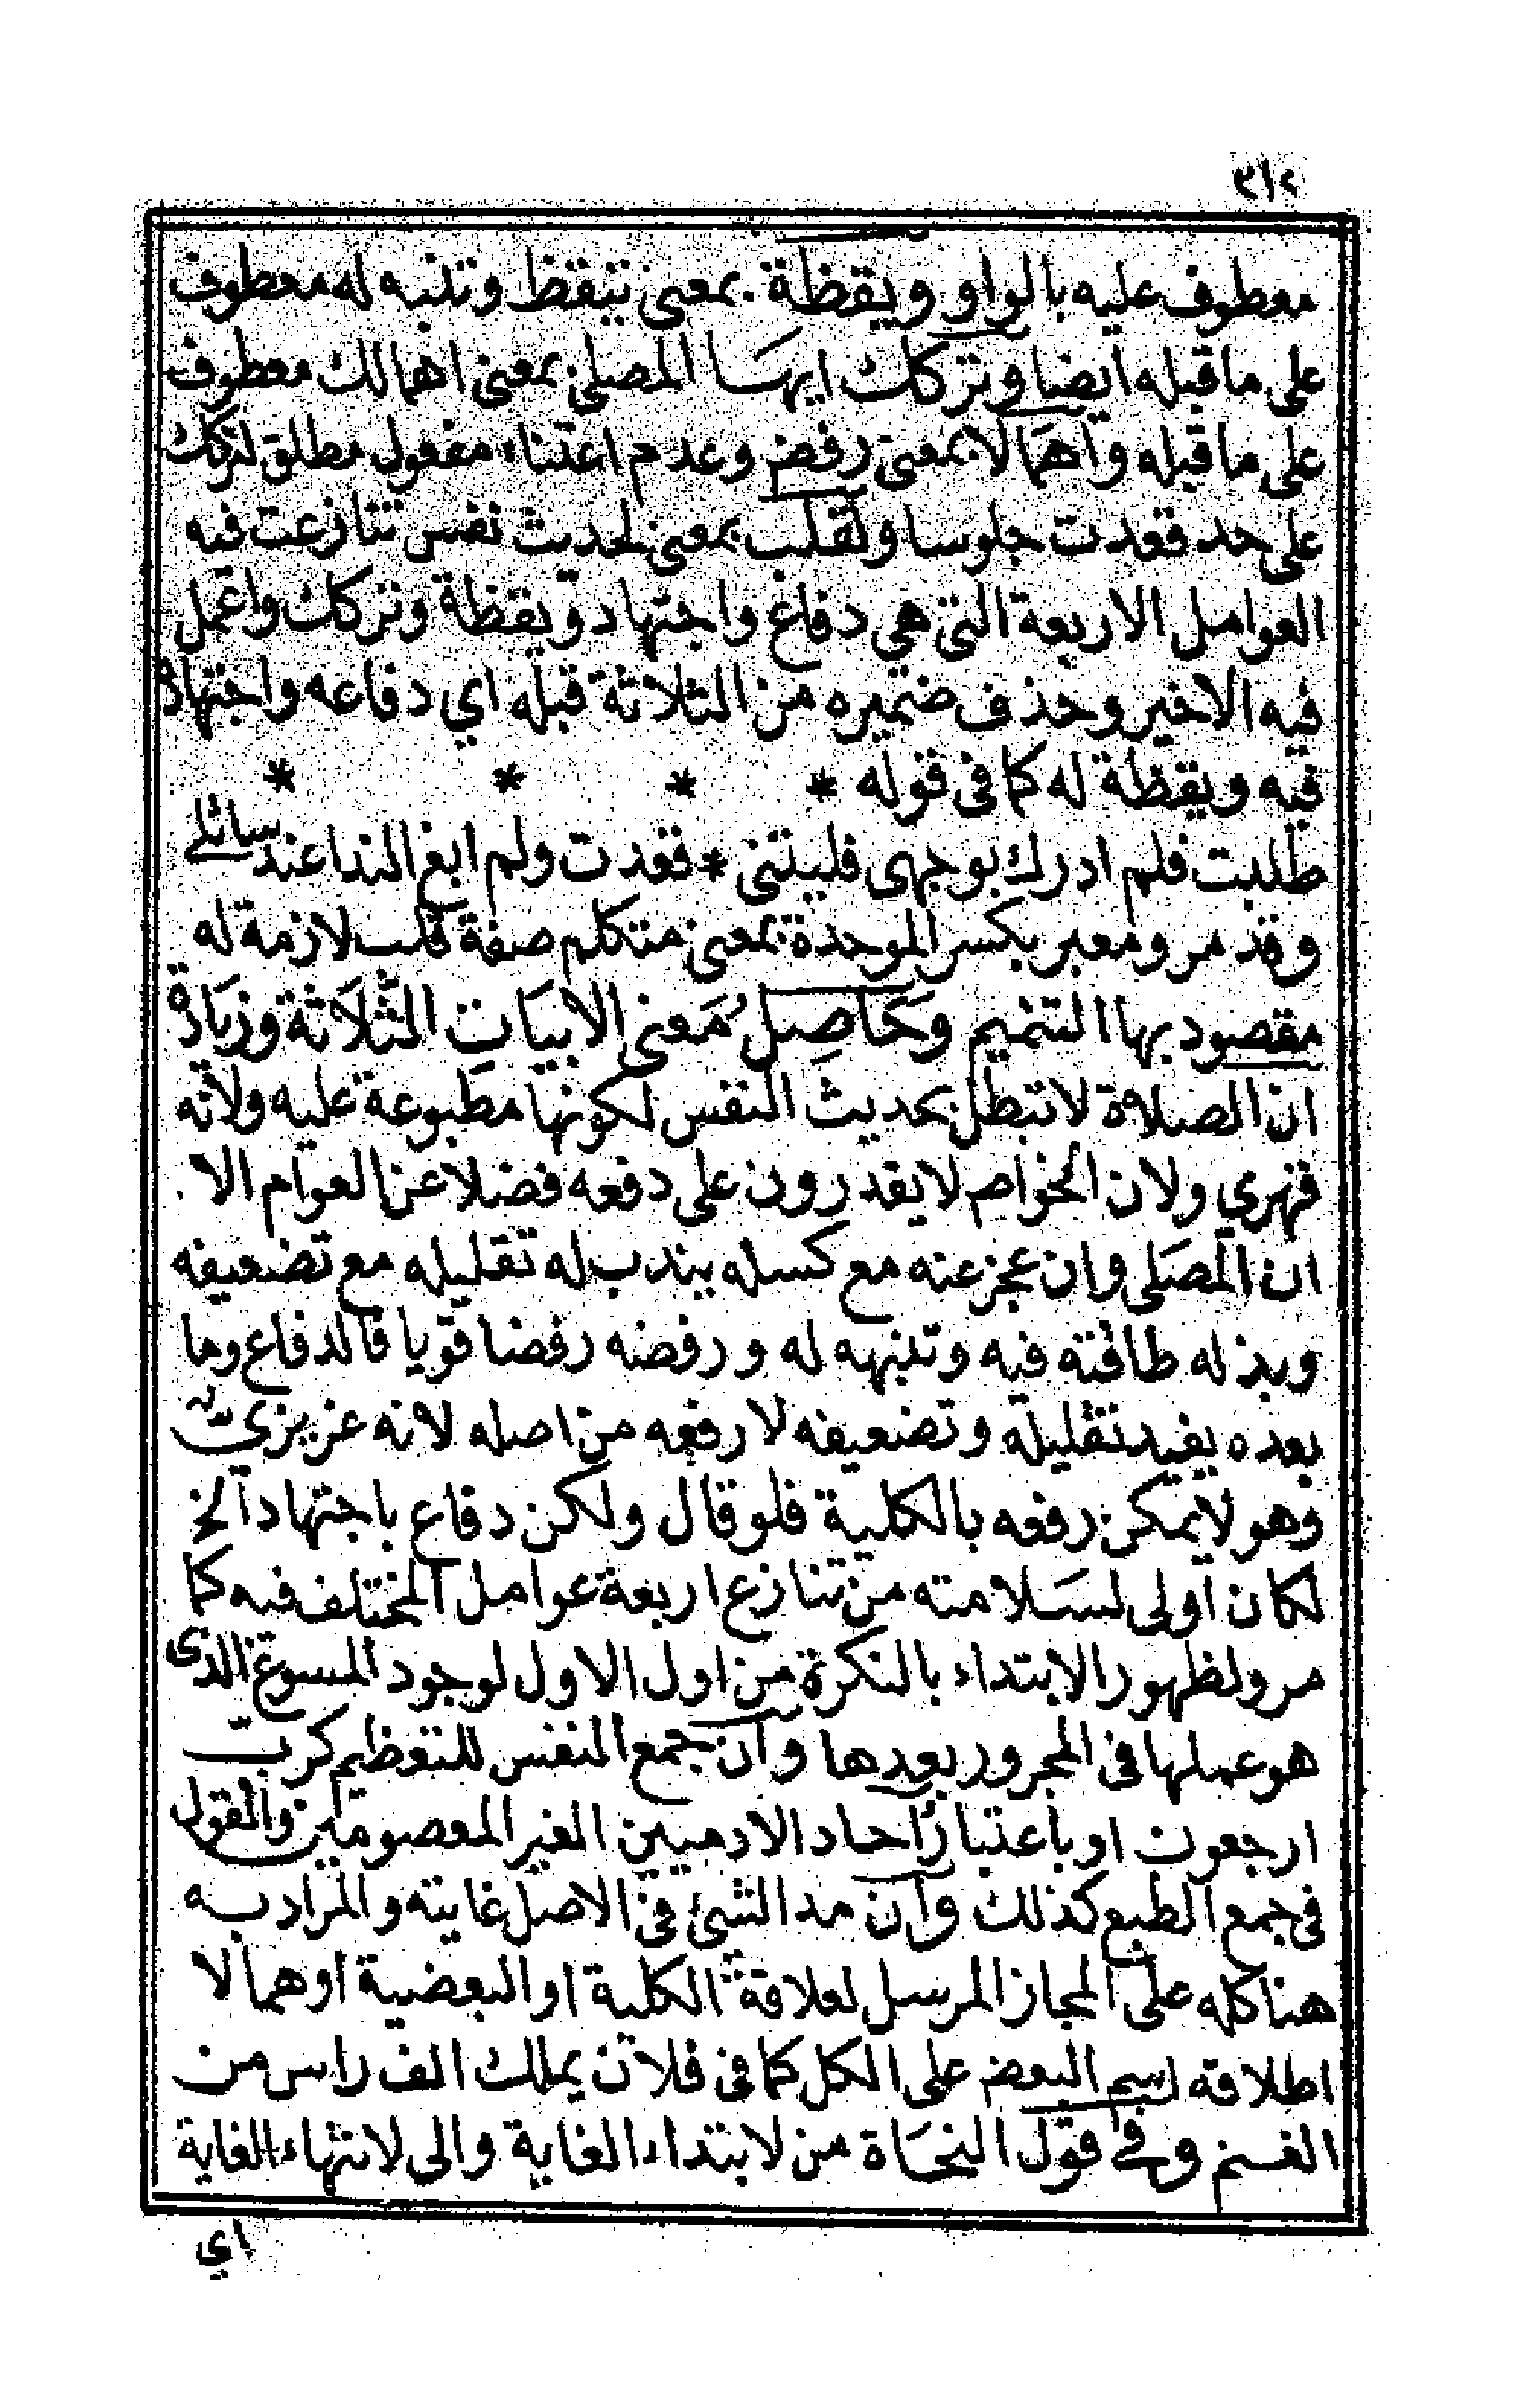 ٣١٢
معطوف عليه بالواو ويقظة بمعنى تيقظ وتنبه له معطوف
على ما قبله ايضا وتركك ايها المصلى بمعنى اهمالك معطوف
على ما قبله واهمالا بمعنى رفض وعدم اعتناء مفعول مطلق لتركك
على حد قعدت جلوسا ولقلب بمعنى لحديث نفس تنازعت فيه
العوامل الاربعة التى هي دفاع واجتهاد ويقظة وتركك واعمل
فيه الاخير وحذف ضميره من الثلاثة قبله اي دفاعه واجتهاد
فيه ويقظة له كما فى قوله * * * *
طلبت فلم ادرك بوجهى فليتنى * قعدت ولم ابغ الندا عند سائلى
وقد مر ومعبر بكسر الموحدة بمعنى متكلم صفة قلب لازمة له
مقصود بها التتميم وَحَاصِلُ مَعنى الابيَاتِ الثَّلَاثة وزيَادة
ان الصلاة لا تبطل بحديث النفس لكونها مطبوعة عليه ولانه
قهري ولان الخواص لا يقدرون على دفعه فضلا عن العوام الا
ان المصَلى وان عجز عنه مع كسله يندب له تقليله مع تضعيفه
وبذله طاقته فيه وتنبهه له ورفضه رفضا قويا فالدفاع وما
بعده يفيد تقليله وتضعيفه لا رفعه من اصله لانه غريزيّ
وهو لا يمكن رفعه بالكلية فلو قال ولكن دفاع باجتهاد الخ
لكان اولى لسَلامته من تنازع اربعة عوامل المختلف فيه كما
مر ولظهور الابتداء بالنكرة من اول الاول لوجود المسوغ الذى
هو عملها فى المجرور بعدها وان جمع النفس للتعظيم كربّ
ارجعون او باعتبار احاد الادميين الغير المعصومين والقول
فى جمع الطبع كذلك وان مد الشئ فى الاصل غايته والمراد به
هنا كله على المجاز المرسل لعلاقة الكلية او البعضية اوهما لا
اطلاقه اسم البعض على الكل كما فى فلان يملك الف راس من
الغنم وفى قول النحَاة من لابتداء الغاية والى لانتهاء الغاية
اي